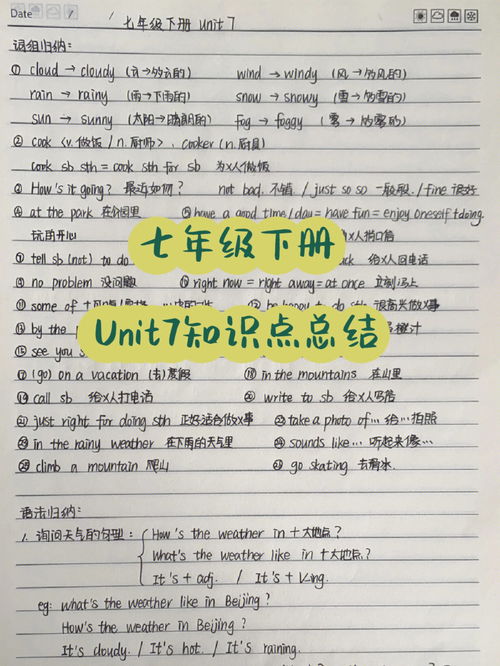 Date
七年级下册 Unit 7
词组归纳:
① cloud → cloudy (云→多云的) wind → windy (风→多风的)
rain → rainy (雨→下雨的) snow → snowy (雪→多雪的)
sun → sunny (太阳→晴朗的) fog → foggy (雾→多雾的)
② cook <v. 做饭 / n. 厨师>、cooker (n. 厨具)
cook sb sth = cook sth for sb 为X人做饭
③ How's it going? 最近如何? not bad. 不错 / just so so 一般般. / fine 很好
④ at the park 在公园里 ⑤ have a good time/day = have fun = enjoy oneself +doing
玩的开心 X人捎口信
七年级下册
⑦ tell sb (not) to do 给X人回电话
⑨ no problem 没问题 right now = right away = at once 立刻马上
⑪ some of
⑬ by the
Unit7知识点总结
⑮ see you s
⑰ (go) on a vacation (去)度假 ⑱ in the mountains 在山里
⑲ call sb 给X人打电话 ⑳ write to sb 给X人写信
㉑ just right for doing sth 正好适合做X事 take a photo of… 给…拍照
in the rainy weather 在下雨的天气里 sounds like… 听起来像…
climb a mountain 爬山 go skating 去滑冰.
语法归纳:
1. 询问天气的句型: How's the weather in + 大地点?
What's the weather like in + 大地点?
It's + adj. / It's + V-ing.
eg: What's the weather like in Beijing?
How's the weather in Beijing?
It's cloudy. / It's hot. / It's raining.